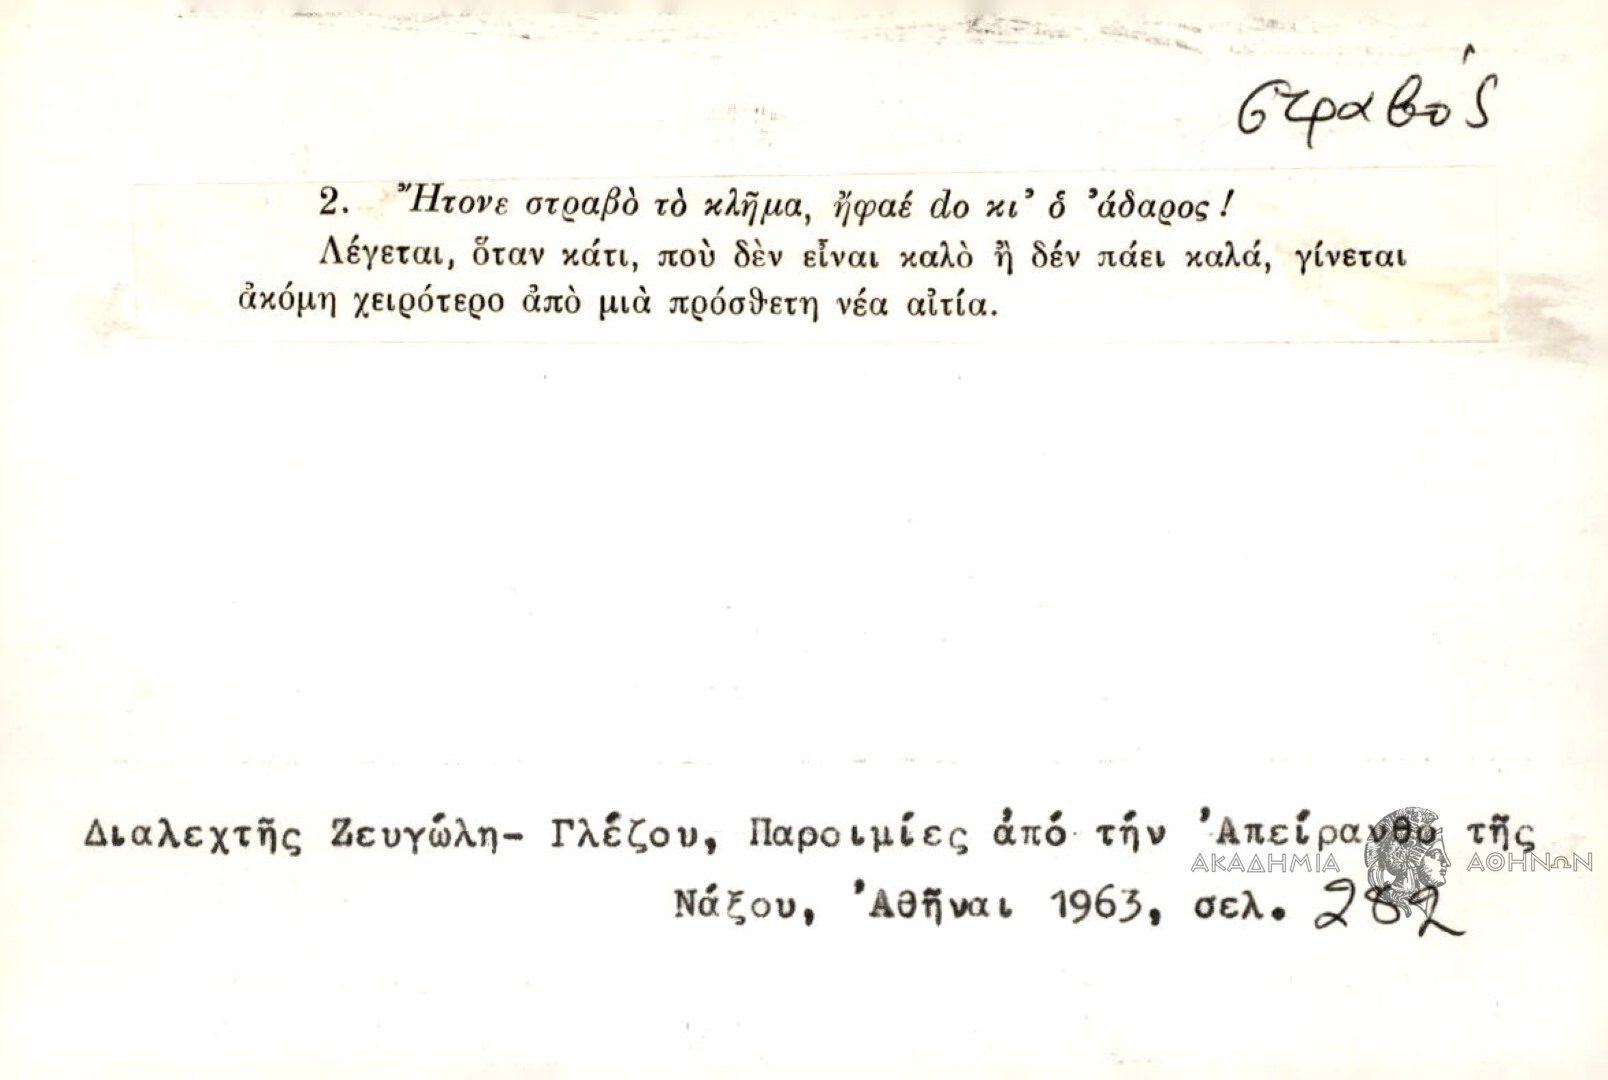 στραβός
2. Ἤτονε στραβὸ τὸ κλῆμα, ἤφαέ do κι’ ὁ ’άδαρος!
Λέγεται, ὅταν κάτι, ποὺ δὲν εἶναι καλὸ ἢ δέν πάει καλά, γίνεται
ἀκόμη χειρότερο ἀπὸ μιὰ πρόσθετη νέα αἰτία.
Διαλεχτῆς Ζευγώλη- Γλέζου, Παροιμίες ἀπό τήν ’Απείρανθο τῆς
ΑΚΑΔΗΜΙΑ ΑΘΗΝΩΝ
Νάξου, ’Αθῆναι 1963, σελ. 282